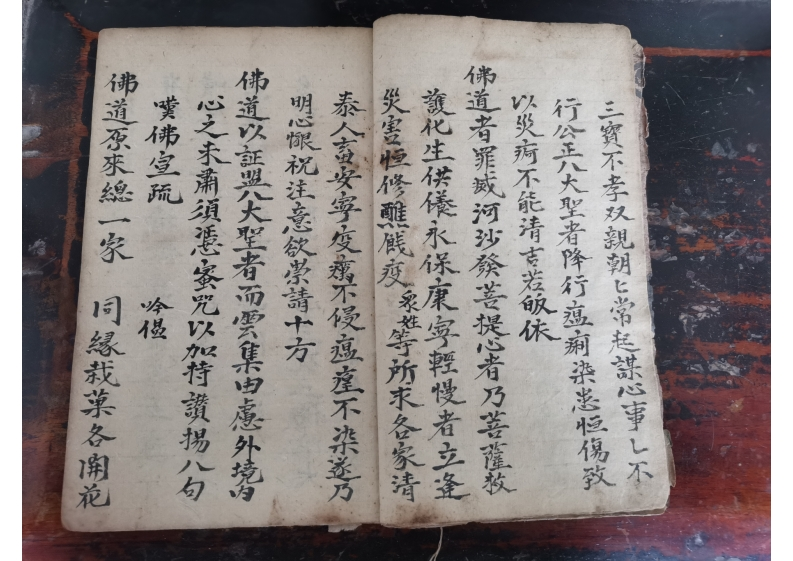 三寶不孝双親朝〻常起謀心事〻不
行公正八大聖者降行瘟痢染患恒傷致
以災疴不能清吉若皈依
佛道者罪威河沙發菩提心者乃菩薩救
護化生供儀永保康寧輕慢者立逢
災害恒修醮餞疫 衆姓等所求各家清
泰人畜安寧疫癘不侵瘟瘽不染遂乃
明心懇祝注意欲崇請十方
佛道以証盟八大聖者而雲集由慮外境内
心之未肅須憑蜜咒以加持讚揚八句
嘆佛宣疏 吟偈
佛道原來總一家 同緣栽菓各開花